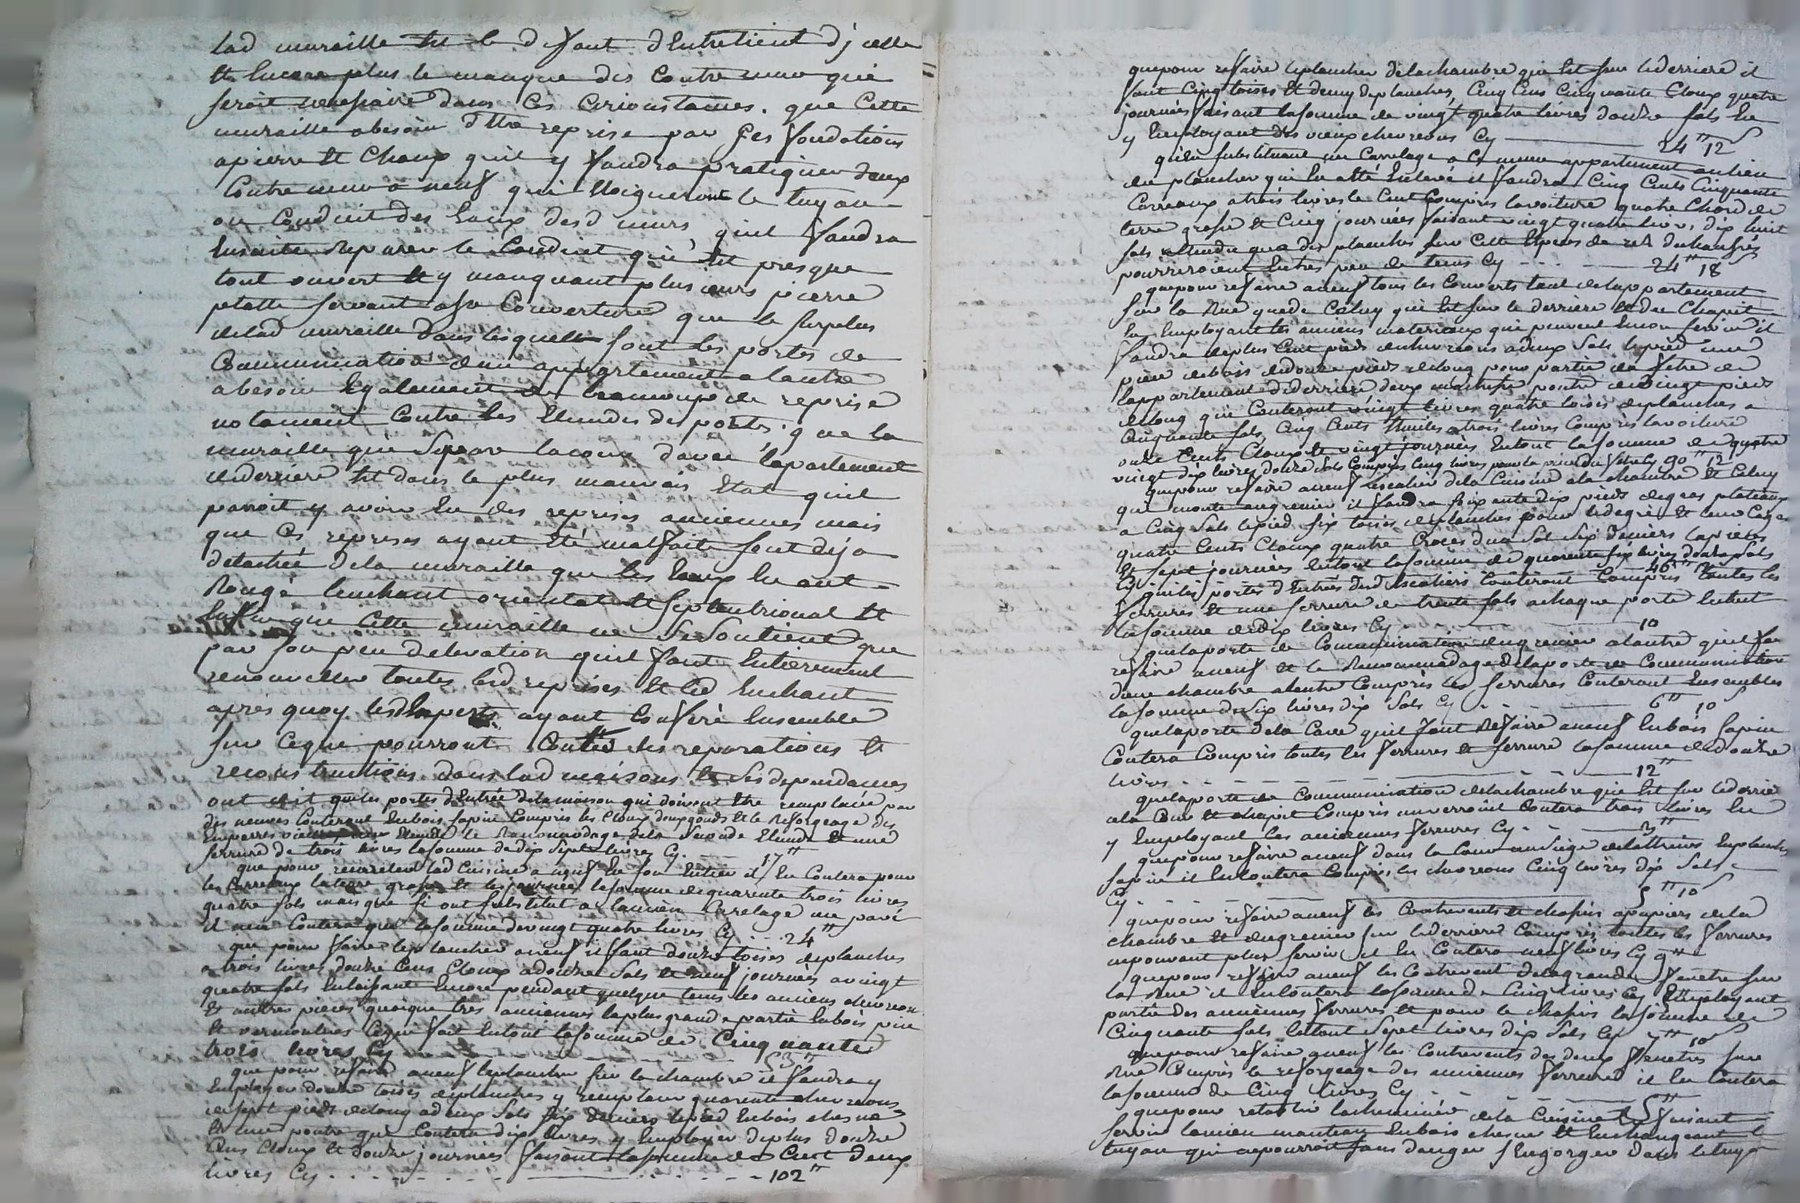 lad muraille est le deffaut d'Entretient d'jcelle
Et Encore plus le manque des Contre mur qui
seroit necessaire dans Ces Circonstances. que Cette
muraille abesoin d'Etre reprise par ses fondations
apierre Et Chaux qu'il y faudra pratiquer deux
Contre mur a neuf qui Eloigneront le tuyau
ou Conduit des Eaux desd murs qu'il faudra
Ensuite reparer le Conduit qui Est presque
tout ouvert Et y manquant plusieurs pierre
platte servant a sa Couverture que le surplus
delad muraille dans lesquelle sont les portes de
Communication d'un appartement a lautre
a besoin Egalement de beaucoup de reprise
notament Contre les Elindes des portes. que la
muraille qui separe la cour d'avec l'apartement
de derriere Est dans le plus mauvais Etat qu'il
paroit y avoir Eu des reprises anciennes mais
que Ces reprises ayant Eté mal faite sont deja
detachée de la muraille que les Eaux En ont
Rongé lenchant oriental Et septentrional Et
Enfin que Cette muraille ne se soutient que
par son peu delevation qu'il faut Entierement
renouveller toutes lesd reprises Et led Enchant
aprés quoy lesd Experts ayant Conferé Ensemble
sur Ceque pourront Couter les reparations Et
reconstructions dans lad maison Et ses dependances
ont dit que les portes d'Entrée dela maison qui doivent Etre remplacée par
des neuves Couteront En bois sapin Compris les Cloux deux gonds Et le Reforgeage des
Emparres Elinde le Racommodage dela seconde Elinde Et une
serrure de trois livres la somme de dix sept livres Cy 17#
que pour recarreler lad Cuisine a neuf En son Entier il En Coutera pour
les Carreaux la terre grasse Et les journées la somme de quarente trois livres
quatre sols mais que si ont substitut a lancien Carelage un pavé
il n'en Coutera que la somme de vingt quatre livres Cy . . 24#
que pour faire le plancher a neuf il faut douze toises de planches
a trois livres douze Cens Cloux a douze sols Et neuf journées a vingt
quatre sols Enlaissant Encore pendant quelque tems les anciens chevreons
Et autres pieces quoique tres anciennes la plus grande partie En bois pin
Et vermoulues Ceque fait Entout la somme de Cinquante
trois livres Cy 53#
que pour refaire a neuf le plancher sur la chambre il faudra y
Employer douze toises de planches y remplacer quarente chevreons
de sept pieds de long a deux sols six deniers le pied En bois chesne
Et une poutre que Coutera dix livres y Employer de plus douze
Cens Cloux Et douze journées faisant la somme de Cent deux
livres Cy . . . . . . 102#
que pour refaire le plancher de la chambre qui Est sur le derriere il
faut Cinq toises Et demy de planches, Cinq Cens Cinquante Cloux quatre
journées faisant la somme de vingt quatre livres douze sols En
y Employant des vieux chevreons Cy 24# 12s
qu'En substituant un Carrelage a Ce meme appartement au lieu
du plancher qui En a été Enlevé il faudra Cinq Cents Cinquante
Carreaux a trois livres le Cent Compris la voiture quatre Chars de
terre grasse Et Cinq journées faisant vingt quatre livres dix huit
sols attendu que des planches sur Cette Espece de rez de chaussés
pourriroient Entres peu de tems Cy . . . 24# 18s
que pour refaire a neuf tous les Couverts tant delappartement
sur la Rue que de Celuy qui Est sur le derriere Et du Chapit
En Employant les anciens materiaux qui peuvent Encor servir il
faudra de plus Cent pieds de chevreons a deux sols le pied une
piece de bois de douze pieds de long pour partie du fetre de
l'appartement de derriere deux poutre de vingt pieds
de long qui Couteront vingt livres quatre toises de planches a
Cinquante sols Cinq Cents thuiles a trois livres Compris la voiture
onze Cents Cloux Et vingt journées Entout la somme de quatre
vingt dix livres douze sols Compris Cinq livres pour la piece du fetre Cy 90# 12s
que pour refaire a neuf lescalier de la Cuisine a la chambre Et Celuy
qui monte au grenier il faudra soixante dix pieds de gres plateaux
a Cinq sols le pied six toises de planches pour le degre Et leur Cage
quatre Cents Cloux quatre d'un sol six deniers la piece
Et sept journées Entout la somme de quarente six livres douze sols
Cy 46# 12s
que les portes d'Entrée desd Escaliers Couteront Compris toutes les
ferrures Et une serrure de trente sols a chaque porte Entout
la somme de dix livres Cy . . . 10
que la porte de Communication du grenier a lautre qu'il faut
refaire a neuf Et le Racommodage de la porte de Communication
d'une chambre a lautre Compris les ferrures Couteront Ensembles
la somme de six livres dix sols Cy . . . 6# 10s
que la porte de la Cave qu'il faut Refaire a neuf En bois sapin
Coutera Compris toutes les ferrures Et serrure la somme de douze
livres . . . 12#
que la porte de Communication de la chambre qui Est sur le derriere
a la Cour Et chapit Compris un verrouil Coutera trois livres En
y Employant les anciennes ferrures Cy . . . 3#
que pour refaire a neuf dans la Cour un siege de lattrines En planches
sapin il En Coutera Compris les chevreons Cinq livres dix sols
Cy . . . 5# 10s
que pour refaire a neuf les Contrevents Et chassis a papiers de la
chambre Et du grenier sur le derriere Compris toutes les ferrures
ne pouvant plus servir il En Coutera neuf livres Cy 9#
que pour refaire a neuf les Contrevent de la grande fenetre sur
la Rue il En Coutera la somme de Cinq livres Cy Employant
partie des anciennes ferrures Et pour le chassis la somme de
Cinquante sols le tout sept livres dix sols Cy 7# 10s
que pour refaire a neuf les Contrevents des deux fenetres sur
Rue Compris le reforgeage des anciennes ferrures il En Coutera
la somme de Cinq livres Cy . . . 5#
que pour retablir la cheminée de la Cuisine Et faisant
servir lancien manteau En bois chesne Et Enchangeant le
tuyau qui ne pourroit sans danger s'Engorger dans le tuyau